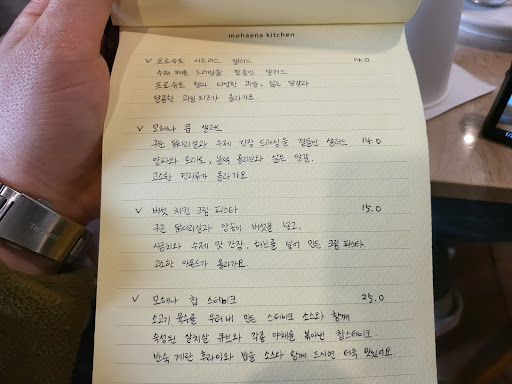 mohaena kitchen
✓ 프로슈토 시트러스 샐러드 14.0
수제 레몬 드레싱을 곁들인 샐러드
프로슈토 햄과 다양한 과일, 삶은 달걀과
달콤한 과일치즈가 올라가요.
✓ 모해나 콥 샐러드 14.0
구운 닭다리살과 수제 간장 드레싱을 곁들인 샐러드
양파와 토마토, 블랙 올리브와 삶은 달걀.
고소한 견과류가 올라가요
✓ 버섯 치킨 크림 파스타 15.0
구운 닭다리살과 양송이 버섯을 넣고,
시금치와 수제 맛간장, 허브를 넣어 만든 크림 파스타.
고소한 아몬드가 올라가요.
✓ 모해나 찹 스테이크 25.0
소고기 육수를 우려내 만든 스테이크 소스와 함께
숙성된 살치살 큐브와 각종 야채를 볶아낸 찹스테이크
반숙 계란 후라이와 밥을 소스와 함께 드시면 더욱 맛있어요.